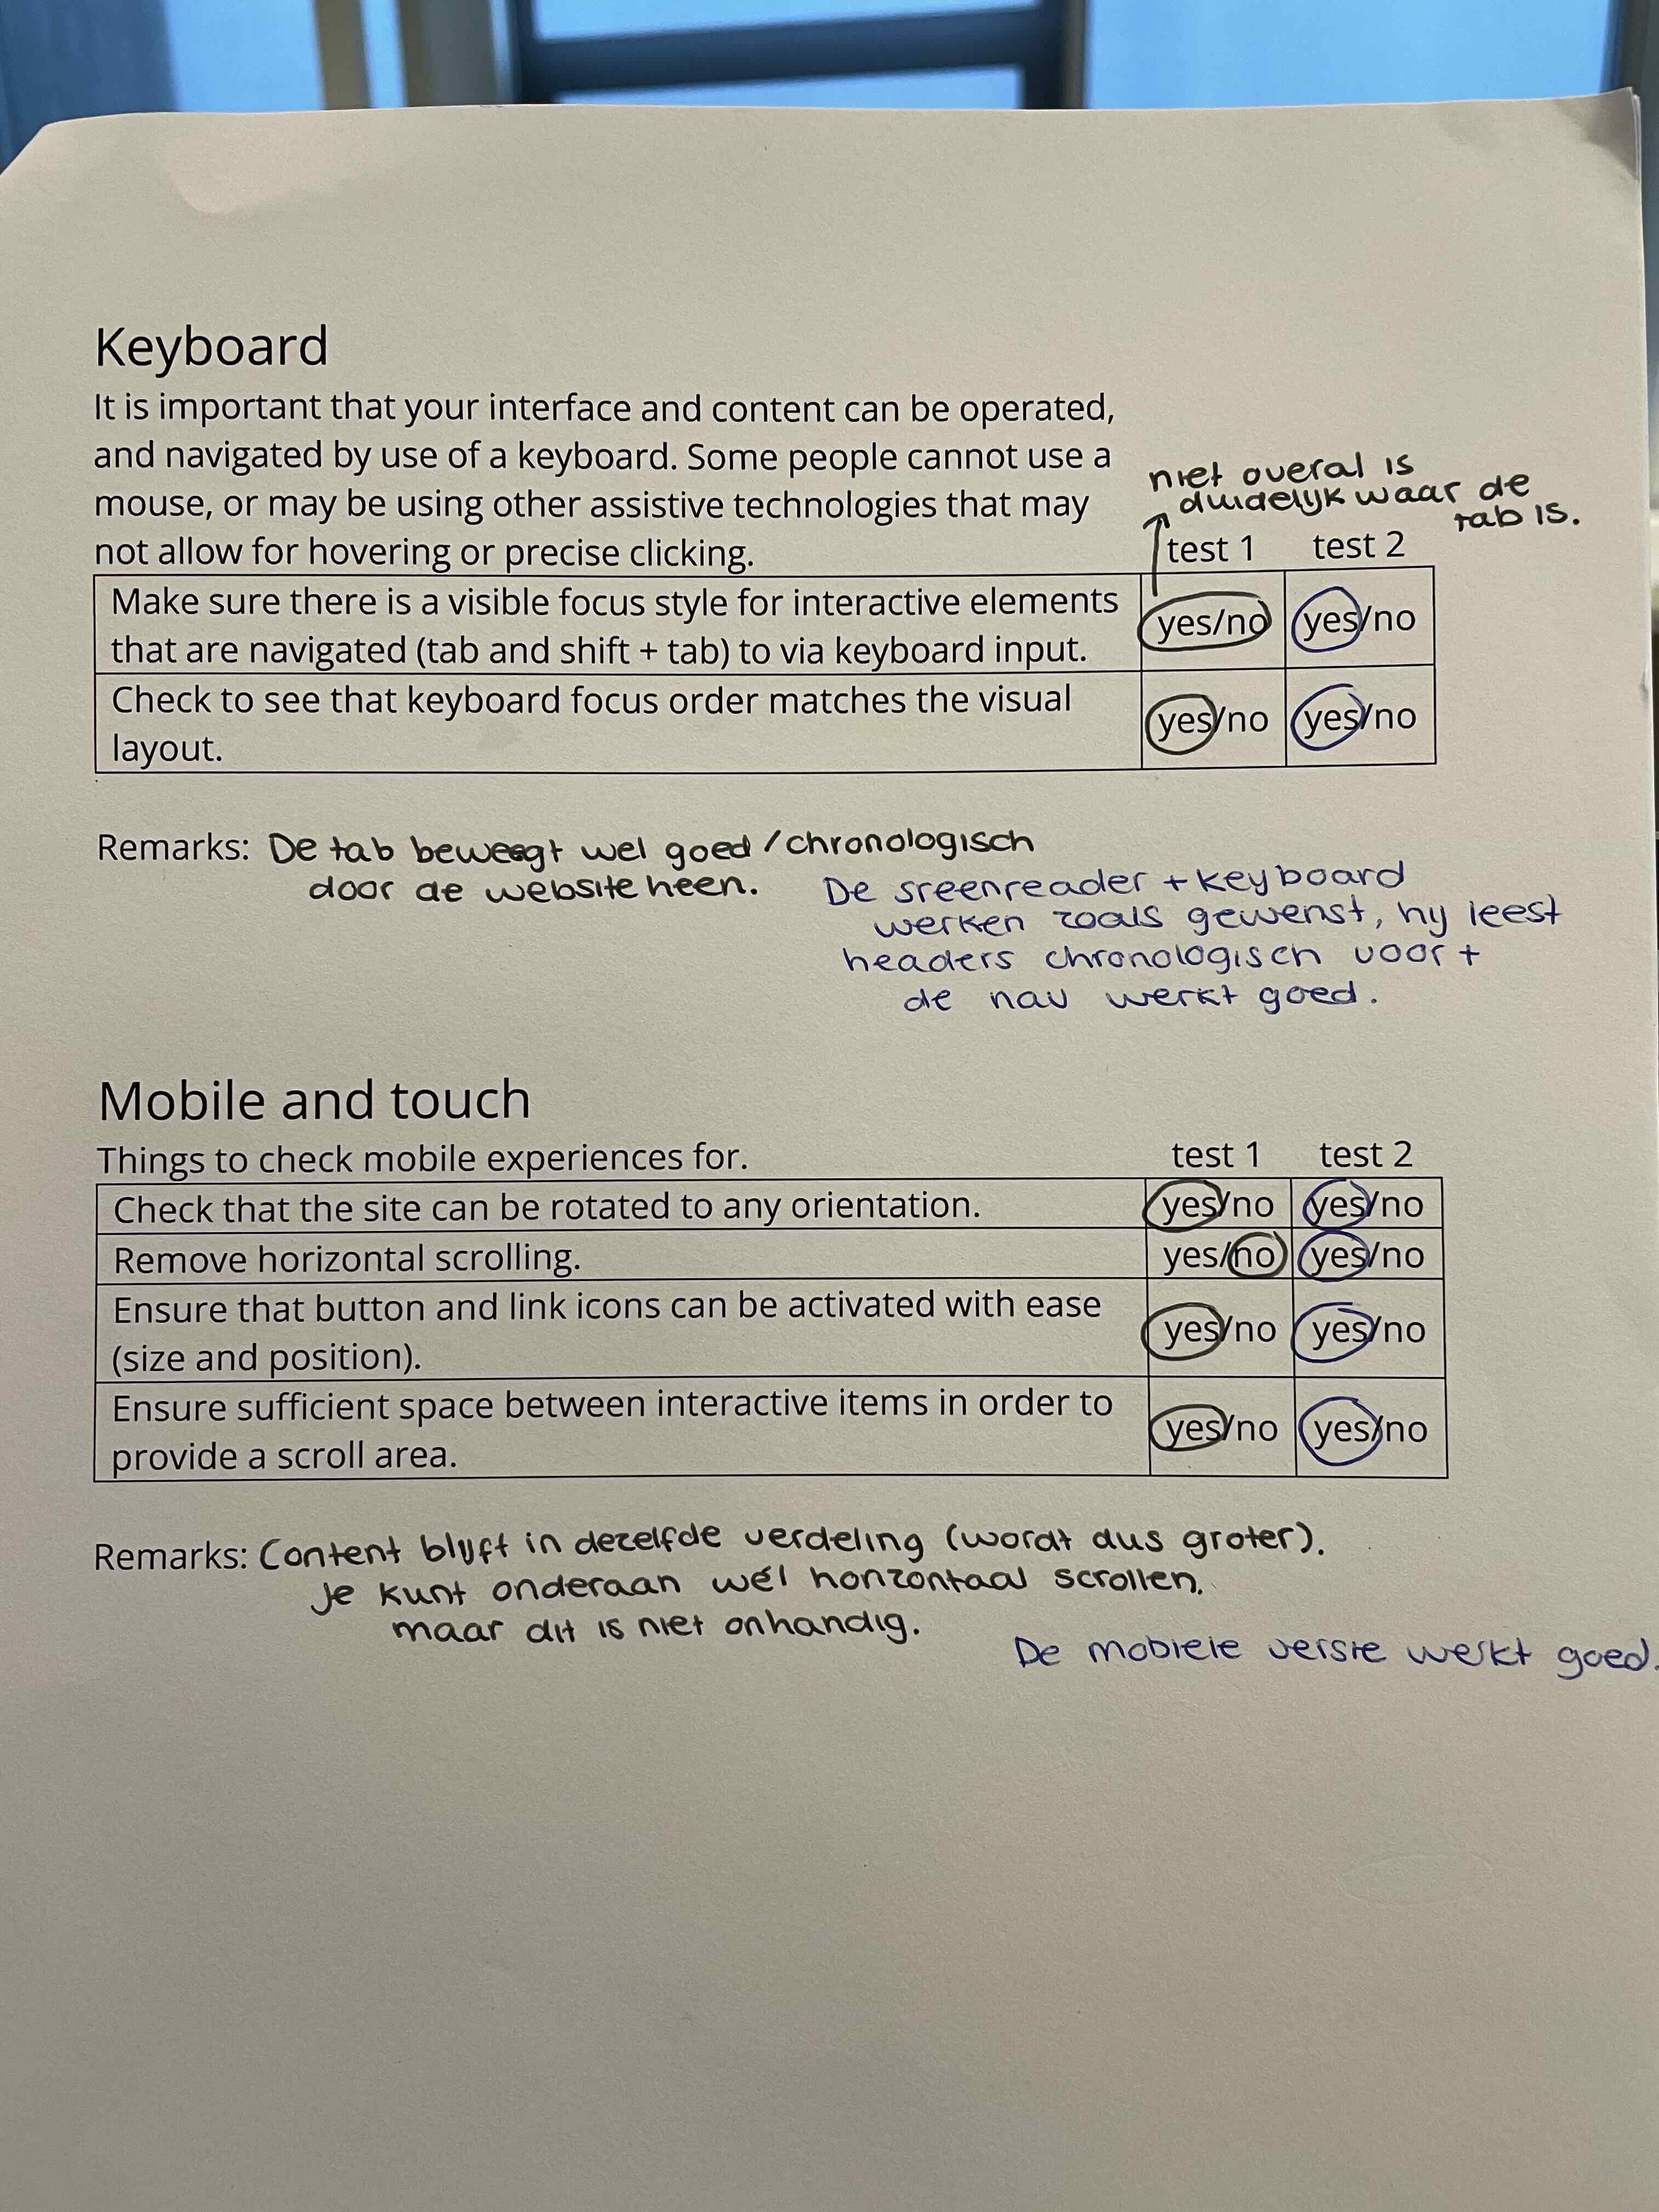 Keyboard
It is important that your interface and content can be operated,
and navigated by use of a keyboard. Some people cannot use a
mouse, or may be using other assistive technologies that may
not allow for hovering or precise clicking.
niet overal is
duidelijk waar de
tab is.
test 1 test 2
Make sure there is a visible focus style for interactive elements
that are navigated (tab and shift + tab) to via keyboard input.
yes/no yes/no
Check to see that keyboard focus order matches the visual
layout.
yes/no yes/no
Remarks: De tab beweegt wel goed / chronologisch
door de website heen.
De sreenreader + keyboard
werken zoals gewenst, hij leest
headers chronologisch voor +
de nav werkt goed.
Mobile and touch
Things to check mobile experiences for. test 1 test 2
Check that the site can be rotated to any orientation. yes/no yes/no
Remove horizontal scrolling. yes/no yes/no
Ensure that button and link icons can be activated with ease
(size and position).
yes/no yes/no
Ensure sufficient space between interactive items in order to
provide a scroll area.
yes/no yes/no
Remarks: Content blijft in dezelfde verdeling (wordt dus groter).
Je kunt onderaan wél horizontaal scrollen.
maar dit is niet onhandig.
De mobiele versie werkt goed.